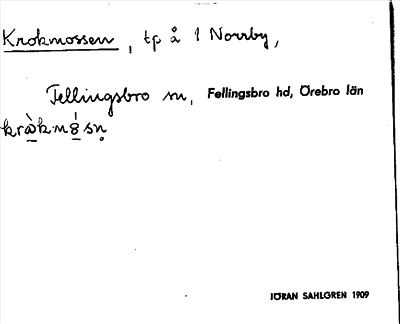 Krokmossen, tp å 1 Norrby,
Fellingsbro sn, Fellingsbro hd, Örebro län
kràk·m8́sn̥
JÖRAN SAHLGREN 1909